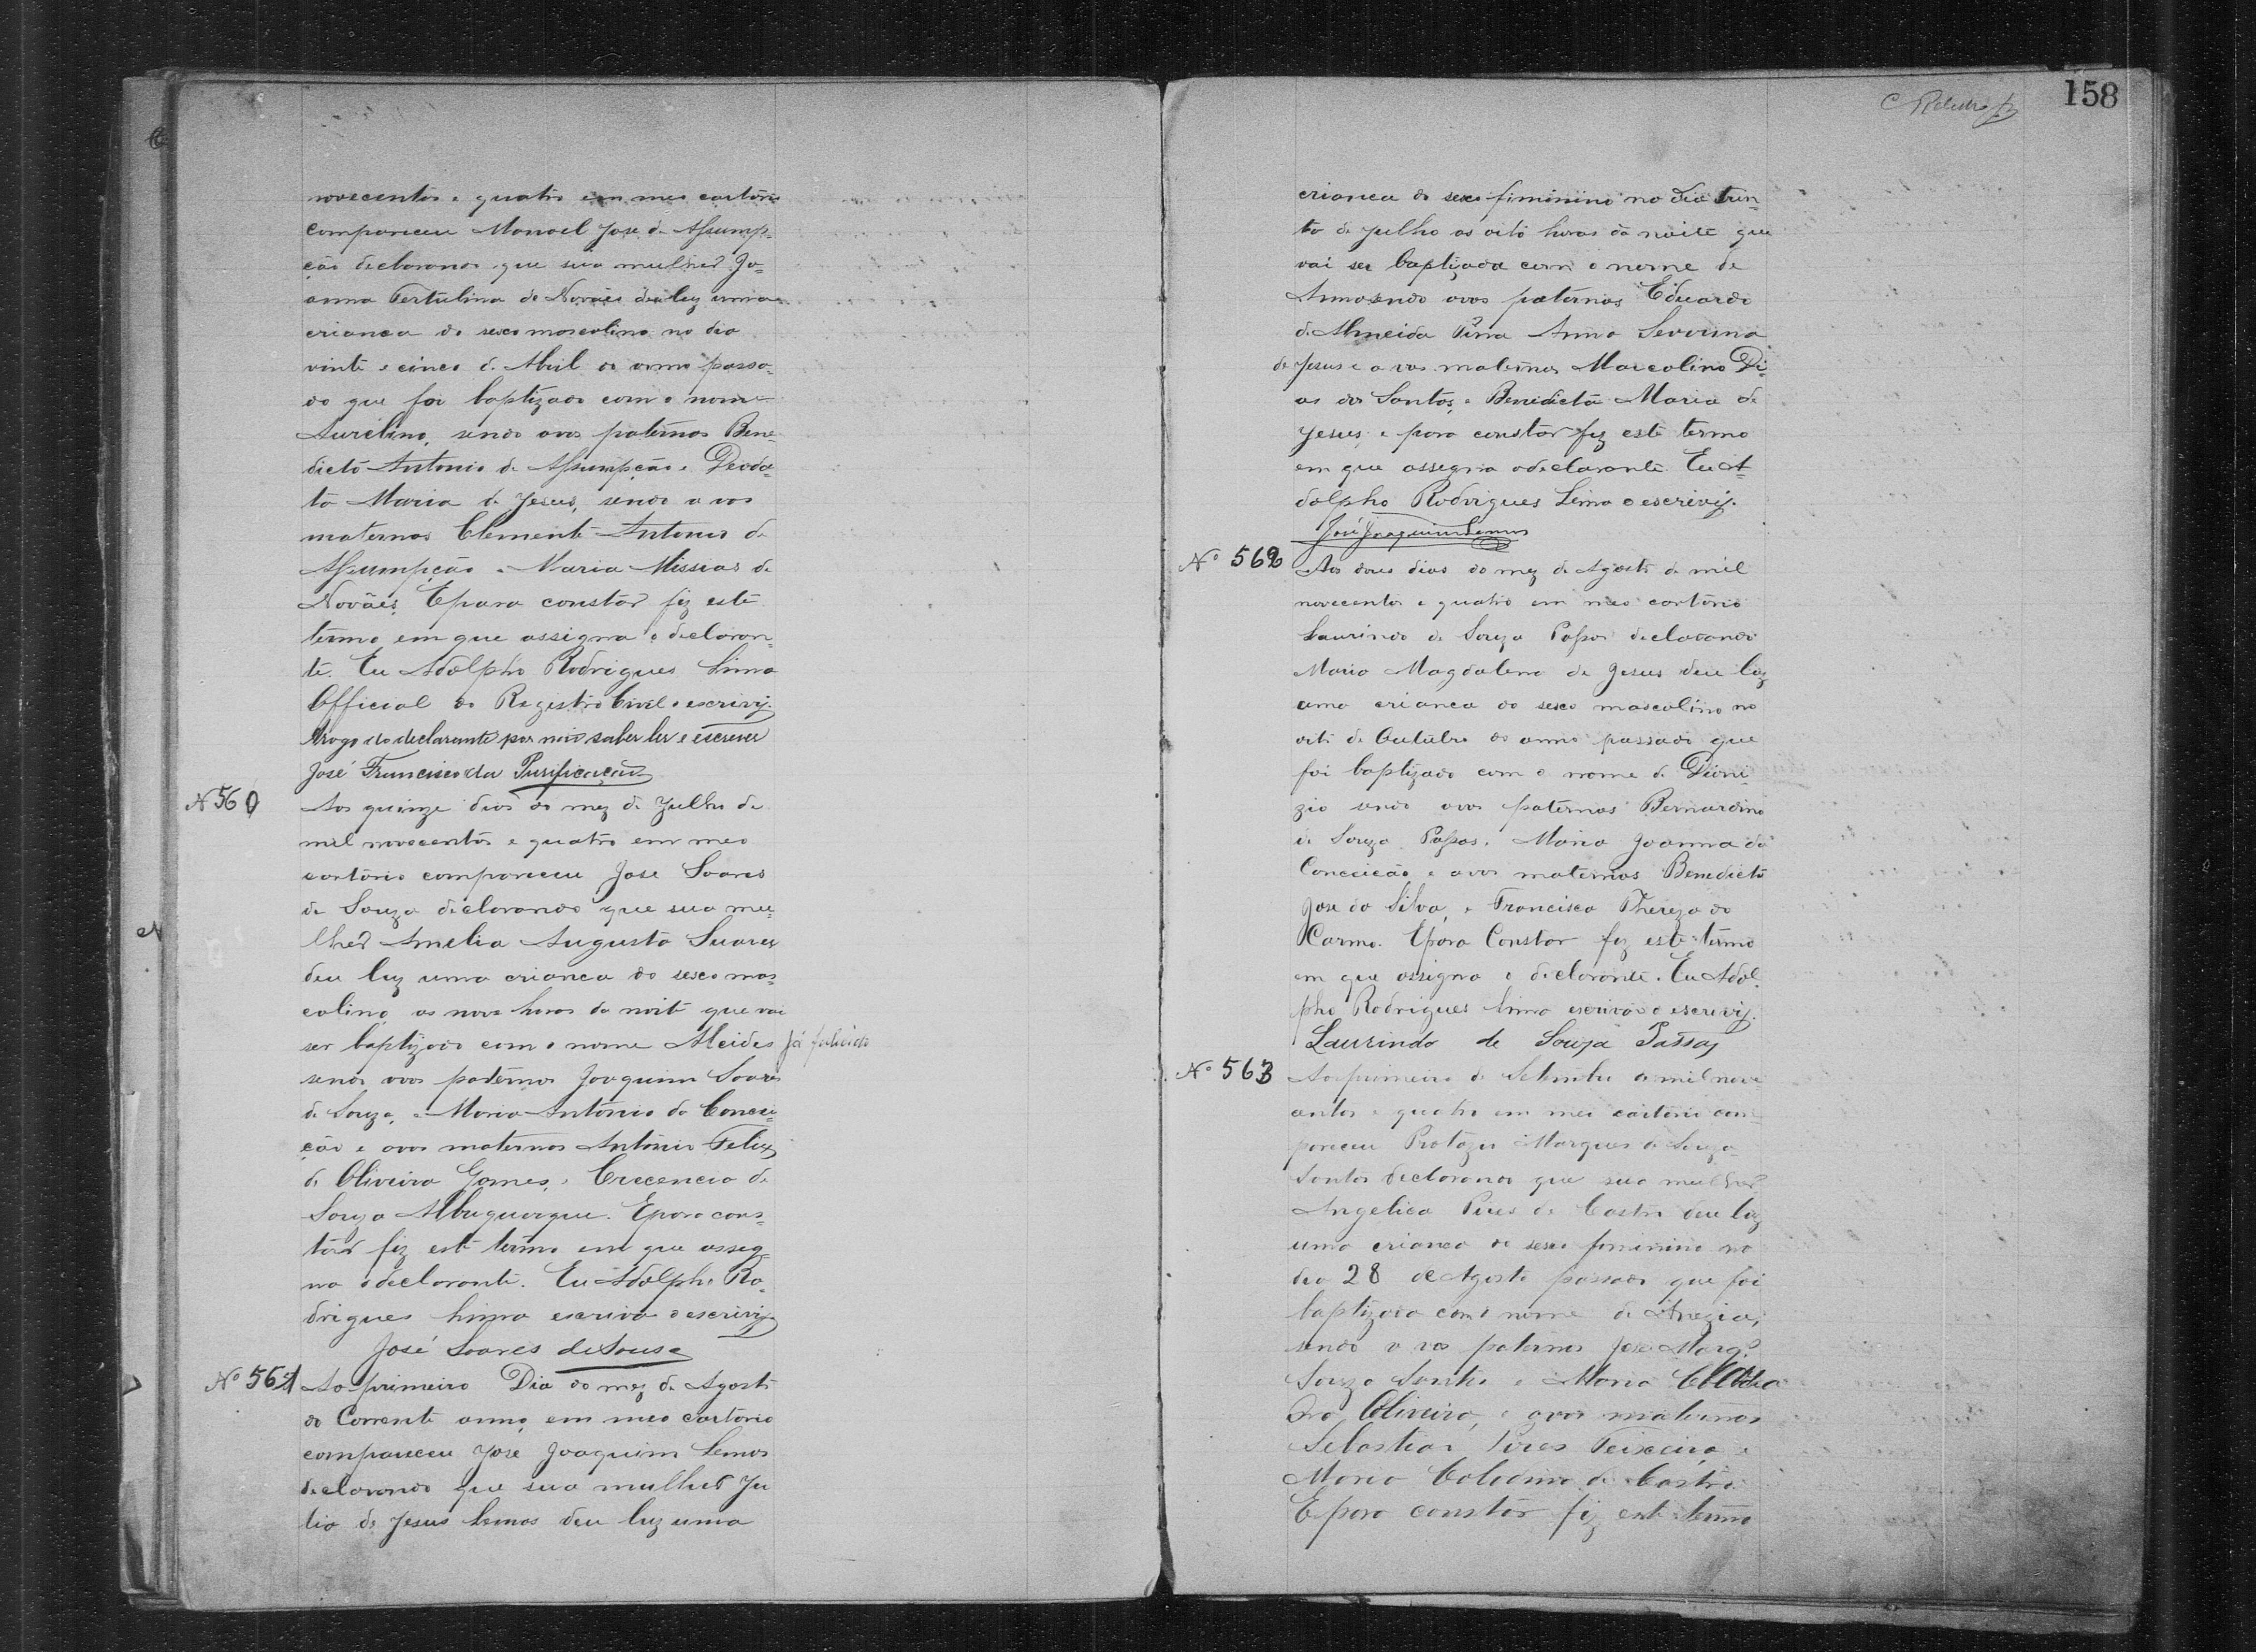 novecentos e quatro em meu cartorio
compareceu Manoel Jose de Assump-
ção declarando que sua mulher Jo-
anna Tertulina de Novaes deu luz uma
crianca do sexo mascolino no dia
vinte e cinco de Abril do anno passa-
do que foi baptizado com o nome
Aurelino, sendo avos paternos Bene-
dicto Antonio de Assumpção e Deoda-
ta Maria de Jesus, sendo avos
maternos Clemente Antonio de
Assumpção e Maria Missias de
Novães. E para constar fiz este
termo em que assigna o declaran-
te. Eu Adolpho Rodrigues Lima
Official do Registro Civil o escrivy.
Arogo do declarante por não saber ler e escrever
José Francisco da Purificação
N 560
Aos quinze dias do mez de Julho de
mil novecentos e quatro em meu
cartorio compareceu Jose Soares
de Souza declarando que sua mu-
lher Amelia Augusta Suares
deu luz uma crianca do sexo mas-
colino as nove horas da noite que vai
ser baptizado com o nome Alcides já falicido
sendo avos paternos Joaquim Soares
de Souza, e Maria Antonia da Concei-
ção e avos maternos Antonio Felix
de Oliveira Gomes, e Crecencia de
Souza Albuquerque. E para cons-
tar fiz este termo em que asseg-
na o declarante. Eu Adolpho Ro-
drigues Lima escrivão o escrivy.
José Soares de Sousa
No 561
Ao primeiro Dia do mez de Agosto
do Corrente anno, em meu cartorio
compareceu Jose Joaquim Lemos
declarando que sua mulher Ju
lia de Jesus Lemos deu luz uma
158
crianca do sexo fiminino no dia trin-
ta de Julho as oito horas da noite que
vai ser baptizada com o nome de
Anna sendo avos paternos Eduardo
de Almeida Anna Severina
de Jesus e avos maternos Marcolino Di-
as dos Santos, e Benedicta Maria de
Jesus e para constar fiz este termo
em que assegna o declarante. Eu A-
dolpho Rodrigues Lima o escrivy.
José Joaquim Lemos
No 562
Aos dous dias do mez de Agosto de mil
novecentos e quatro em meu cartorio
Laurindo de Souza Passos declarando
Maria Magdalena de Jesus deu luz
uma crianca do sexo mascolino no
oito de Outubro do anno passado que
foi baptizado com o nome de Dioni
zio sendo avos paternos Bernardino
de Souza Passos e Maria Joanna da
Conceicão, e avos maternos Benedicto
Jose da Silva, e Francisca Thereza do
Carmo. E para Constar fiz este termo
em que assigna o declarante. Eu Adol-
pho Rodrigues Lima escrivão o escrivy.
Laurindo de Souza Passos
No 563
Ao primeiro de Setembro de mil nove
centos e quatro em meu cartorio com-
pareceu Protazio Marques de Souza
Santos declarando que sua mulher
Angelica Pires de Castro deu luz
uma crianca do sexo fiminino no
dia 28 de Agosto passado que foi
baptizada com o nome de Anezia,
sendo avos paternos Jose Marq.s
Souza Santos e Maria
Oliveira, e avos maternos
Sebastião Pires Teixeira e
Maria de Castro.
E para constar fiz este termo